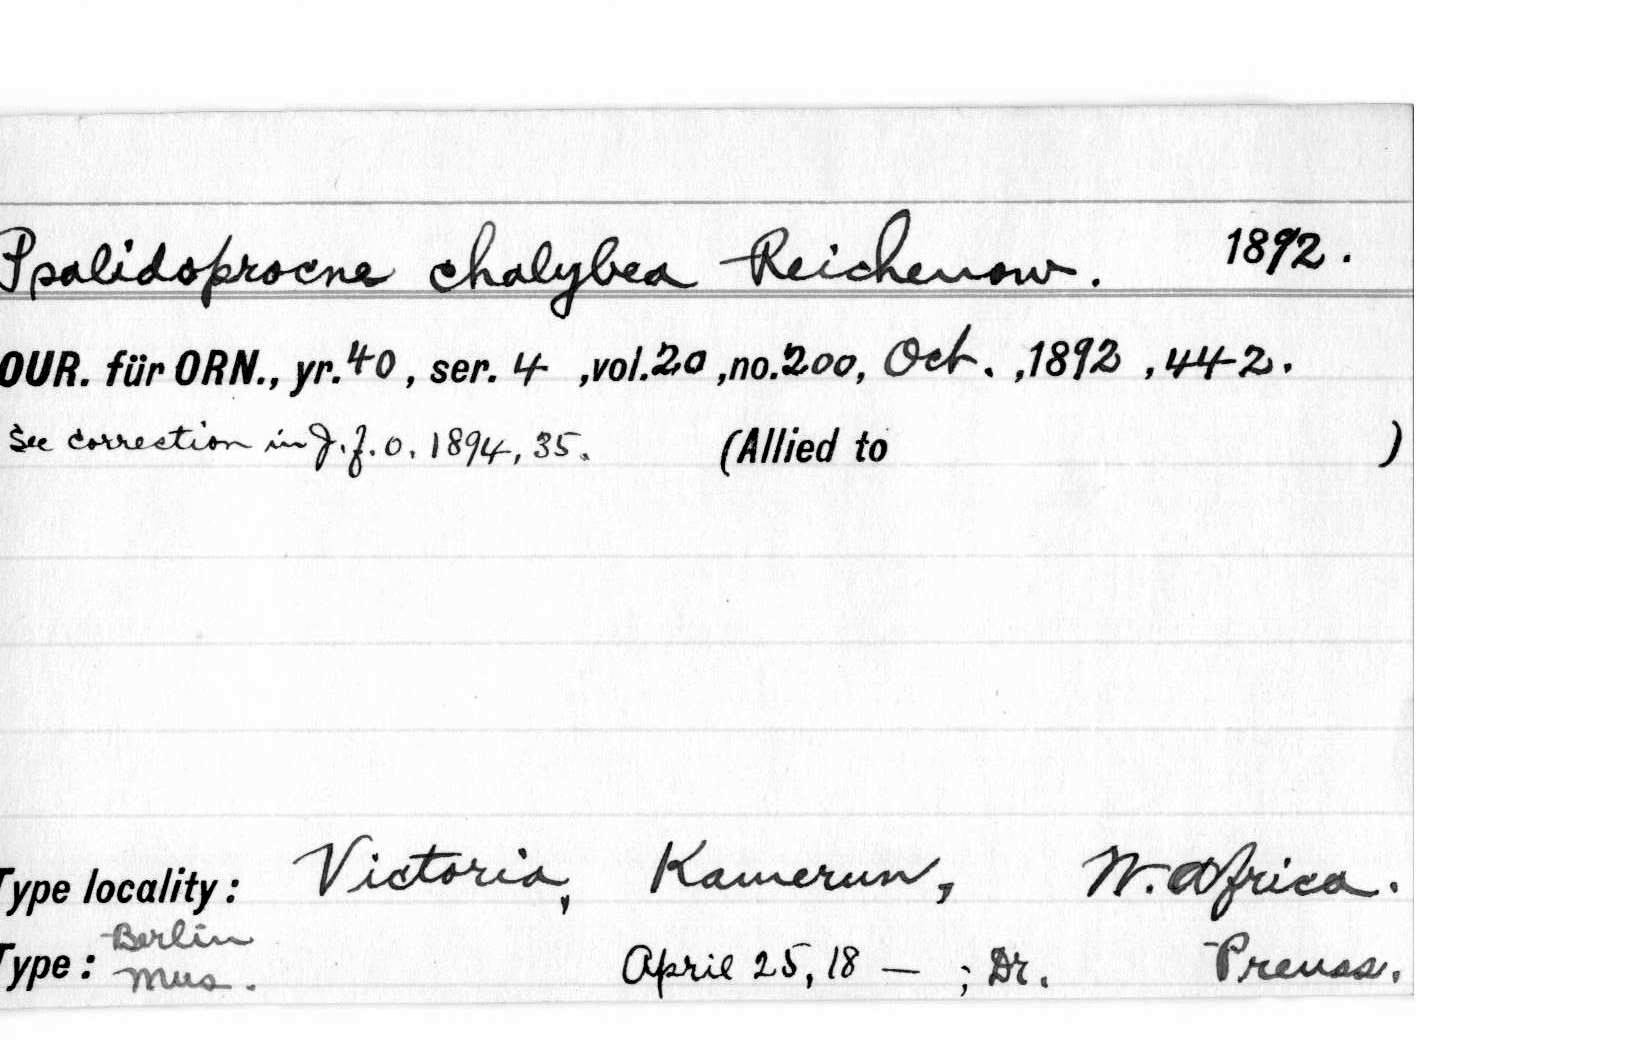 Psalidoprocne chalybea Reichenow. 1892.
OUR. für ORN., yr. 40, ser. 4 ,vol. 20 ,no. 200, Oct. ,1892 ,442.
See correction in J.f.O. 1894, 35. (Allied to )
Type locality: Victoria, Kamerun, W. Africa.
Type: Berlin Mus. April 25, 18 — ; Dr. Preuss.